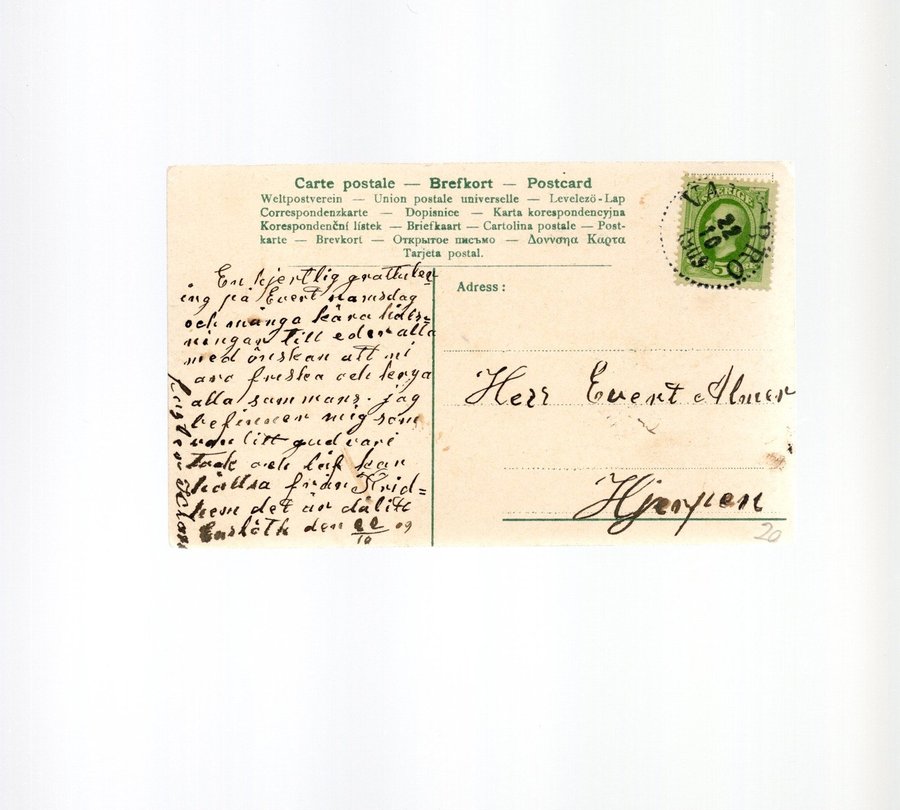 Carte postale — Brefkort — Postcard
Weltpostverein — Union postale universelle — Levelező-Lap
Correspondenzkarte — Dopisnice — Karta korespondencyjna
Korespondenční lístek — Briefkaart — Cartolina postale — Post-
karte — Brevkort — Открытое письмо — Δουνσηα Καρτα
Tarjeta postal.
SVERIGE
5
22
10
1909
En hjertlig gratuler
ing på Evert namsdag
och många kära häls=
ningar till eder alla
med önskan att ni
ara friska och kerya
alla sammans. jag
befinner mig som
van litt gud vari
tack och leif kan
hällsa från Krid=
hem det är dålitt
den 22/10 09
Adress:
Herr Evert Almer
Hjerpen
20